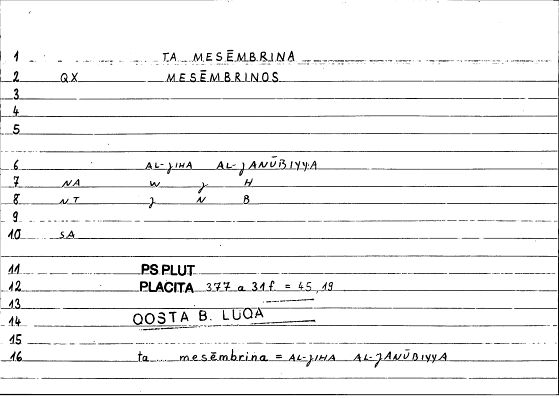 1 TA MESĒMBRINA
2 QX MESĒMBRINOS
3
4
5
6 AL-ǧIHA AL-ǧANŪBIYYA
7 NA W ǧ H
8 NT ǧ N B
9
10 SA
11 PS PLUT
12 PLACITA 377 a 31 f = 45,19
13
14 QOSTA B. LUQA
15
16 ta mesēmbrina = AL-ǧIHA AL-ǧANŪBIYYA